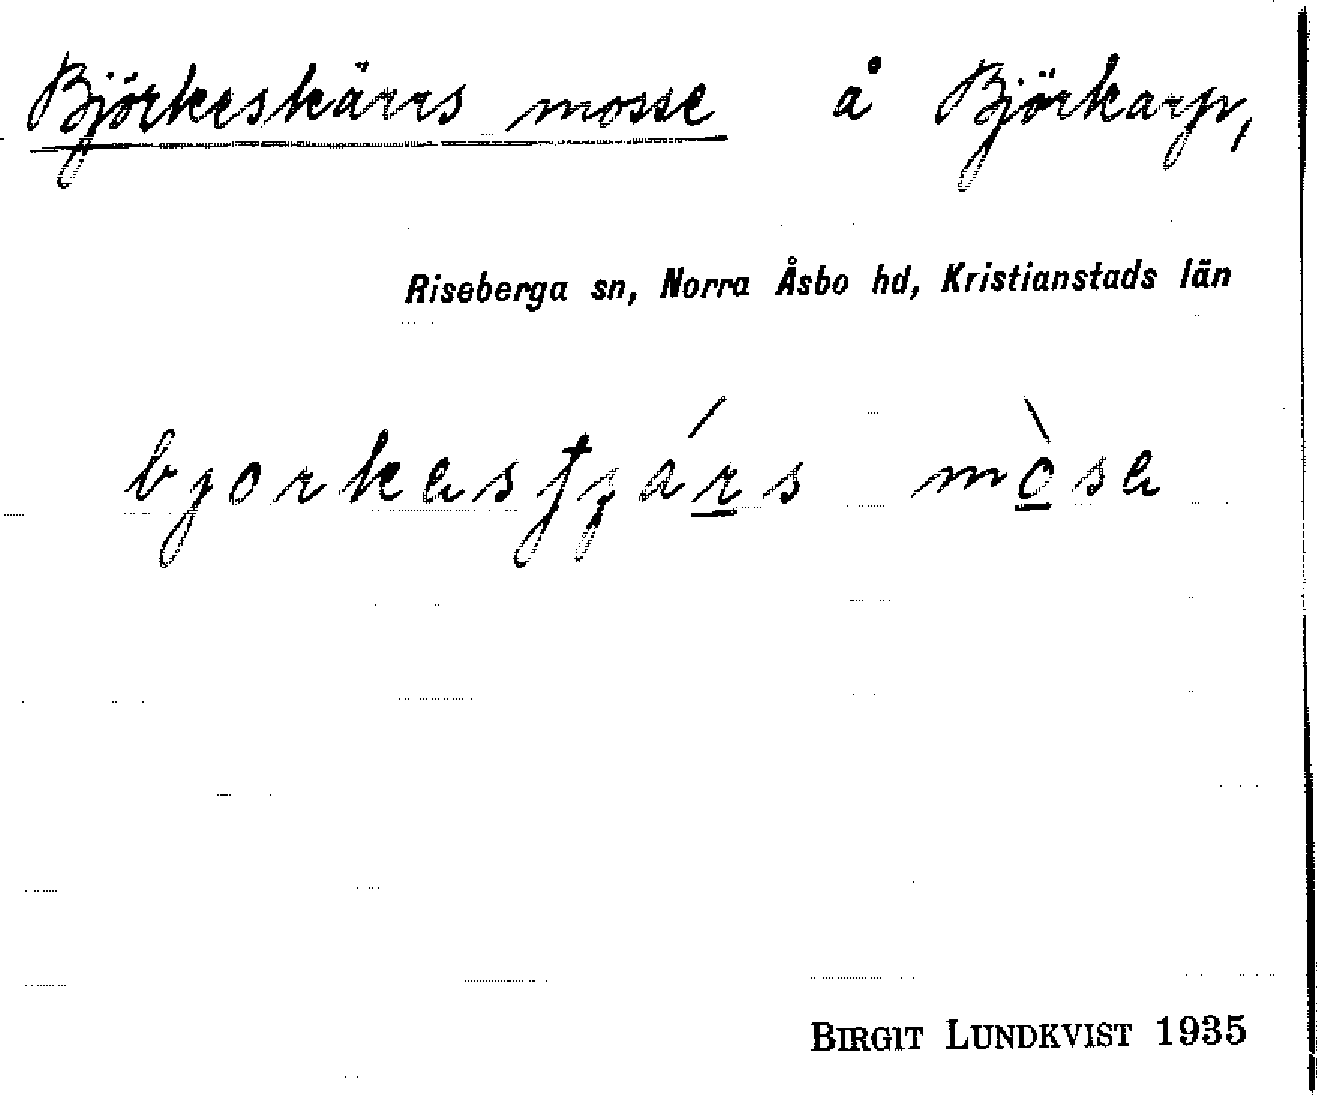 Björkeskärrs mosse å Björkarp,
Riseberga sn, Norra Åsbo hd, Kristianstads län
mòse
BIRGIT LUNDKVIST 1935